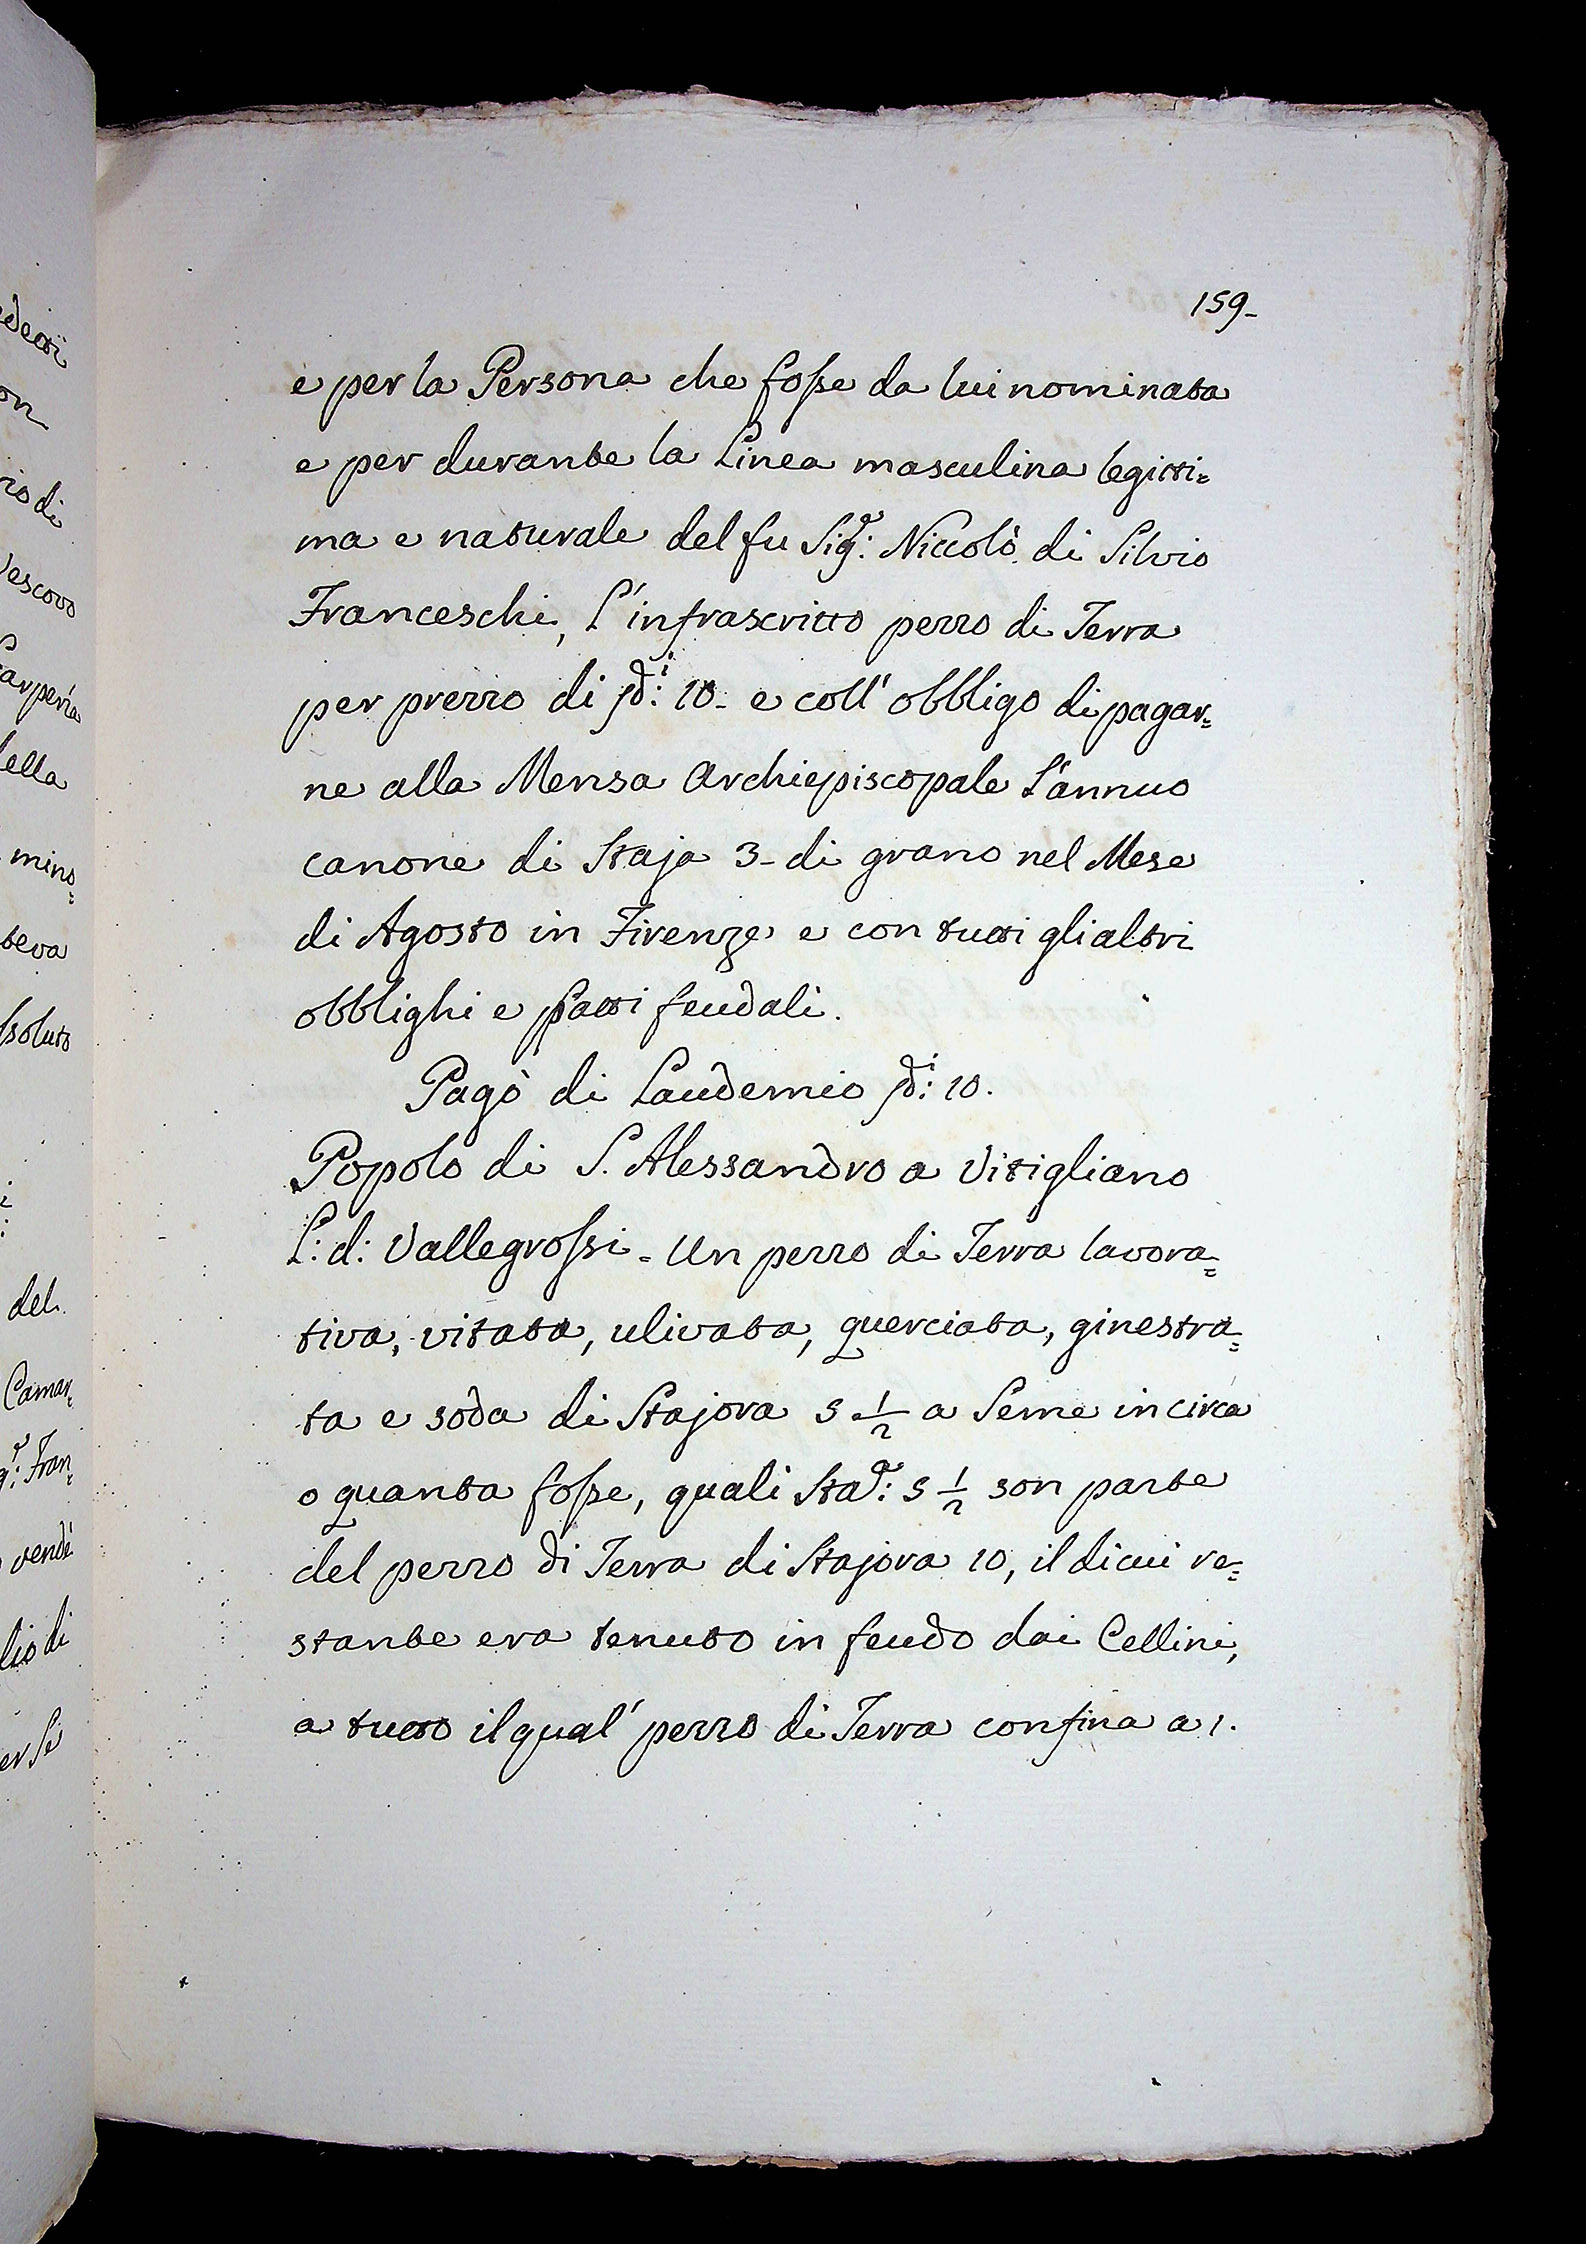 159-
e per la Persona che fosse da lui nominata
e per durante la Linea masculina legitti=
ma e naturale del fu Sig.r: Niccolò di Silvio
Franceschi, l'infrascritto pezzo di Terra
per prezzo di sd.i: 10- e coll' obbligo di pagar=
ne alla Mensa Archiepiscopale l'annuo
canone di Staja 3- di grano nel Mese
di Agosto in Firenze e con tutti gli altri
obblighi e patti feudali.
Pagò di Laudemio sd.i: 10.
Popolo di S. Alessandro a Vitigliano
L: d: Vallegrossi - Un pezzo di Terra lavora=
tiva, vitata, ulivata, querciata, ginestra=
ta e soda di Stajora 5 1/2 a Seme incirca
o quanta fosse, quali Sta.r: 5 1/2 son parte
del pezzo di Terra di Stajora 10, il di cui re=
stante era tenuto in feudo dai Cellini,
a tutto il qual' pezzo di Terra confina a 1.
detti
on
rio di
Vescovo
carperia
della
mino=
teva
ssoluto
del
Camar=
g.r: Fran=
vendè
lio di
er Se